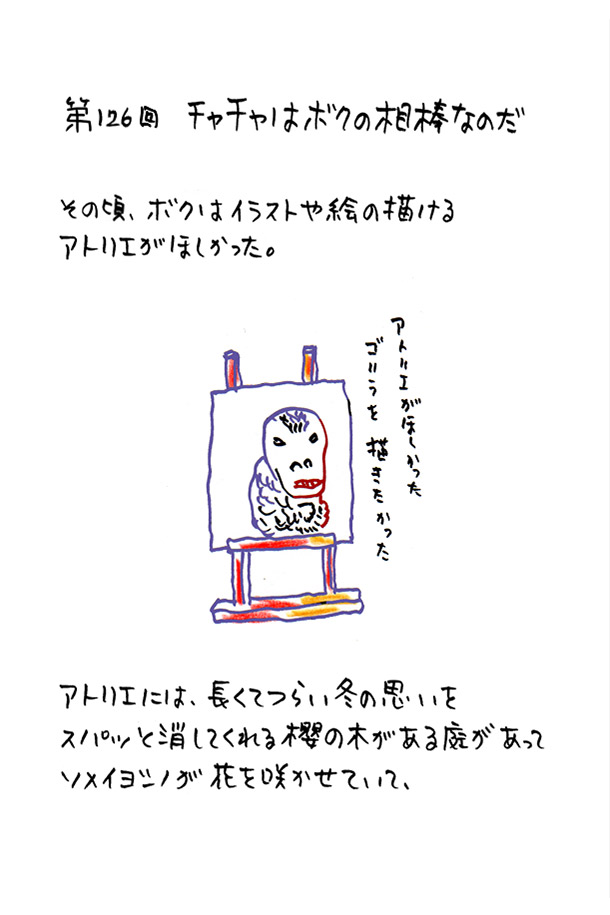 第126回 チャチャはボクの相棒なのだ
その頃、ボクはイラストや絵の描ける
アトリエがほしかった。
アトリエがほしかった
ゴリラを描きたかった
アトリエには、長くてつらい冬の思いを
スパッと消してくれる櫻の木がある庭があって
ソメイヨシノが花を咲かせていて、